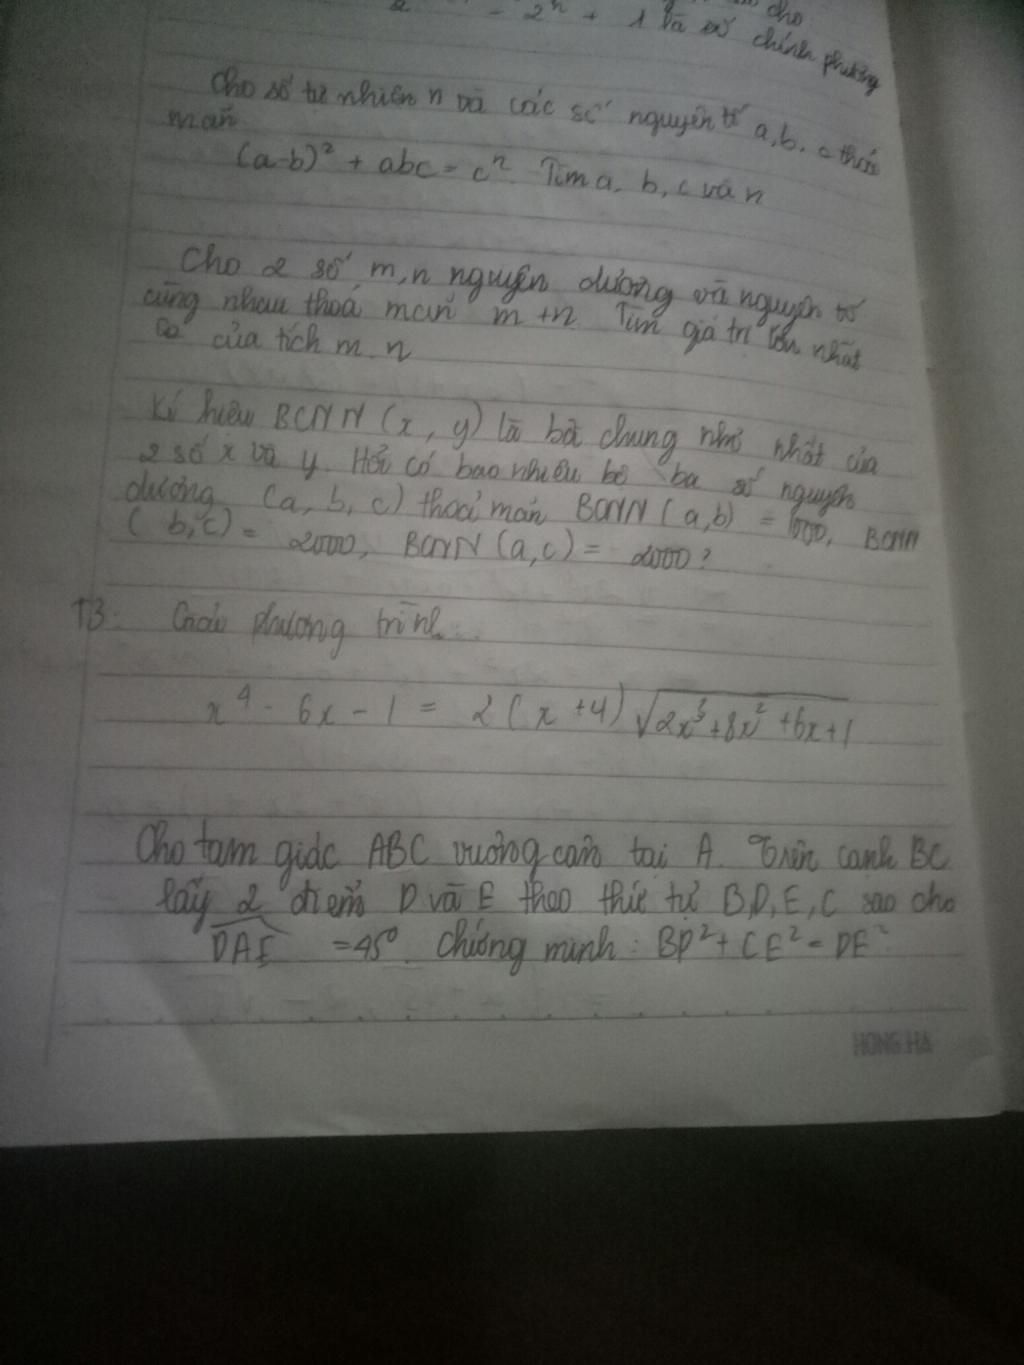 - 2ⁿ + 1 là số chính phương
cho
Cho số tự nhiên n và các số nguyên tố a, b, c thoả
mãn
(a-b)² + abc = cⁿ. Tìm a, b, c và n
Cho 2 số m, n nguyên dương và nguyên tố
cùng nhau thoả mãn m + n Tìm giá trị lớn nhất
của tích m.n
Kí hiệu BCNN (x, y) là bội chung nhỏ nhất của
2 số x và y. Hỏi có bao nhiêu bộ ba số nguyên
dương (a, b, c) thoả mãn BCNN (a,b) = 1000, BCNN
(b,c) = 2000, BCNN (a,c) = 2000?
13: Giải phương trình:
x⁴ - 6x - 1 = 2(x + 4) √2x³ + 8x² + 6x + 1
Cho tam giác ABC vuông cân tại A. Trên cạnh BC
lấy 2 điểm D và E theo thứ tự B, D, E, C sao cho
DAE = 45⁰. Chứng minh: BD² + CE² = DE²
HONG HA